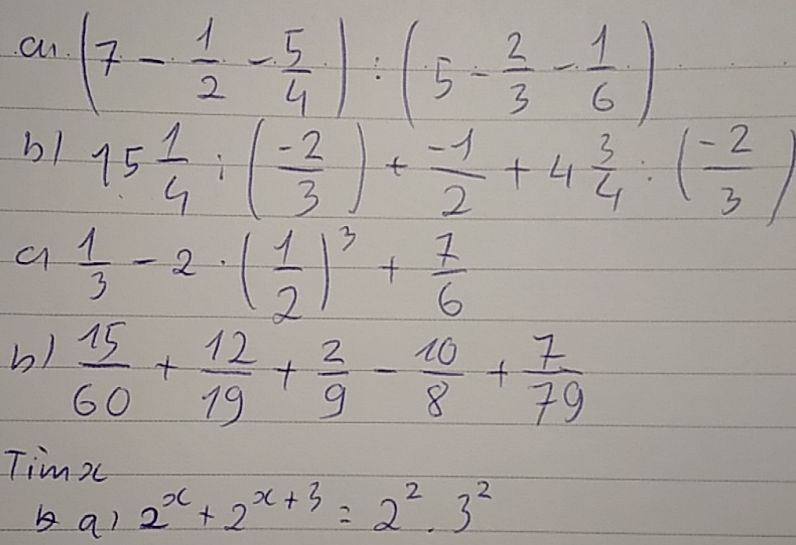 a) (7 - 1/2 - 5/4) : (5 - 2/3 - 1/6)
b) 15 1/4 : (-2/3) + -1/2 + 4 3/4 : (-2/3)
c) 1/3 - 2 . (1/2)³ + 7/6
b) 15/60 + 12/19 + 2/9 - 10/8 + 7/79
Tìm x
a) 2^x + 2^(x+3) = 2² . 3²